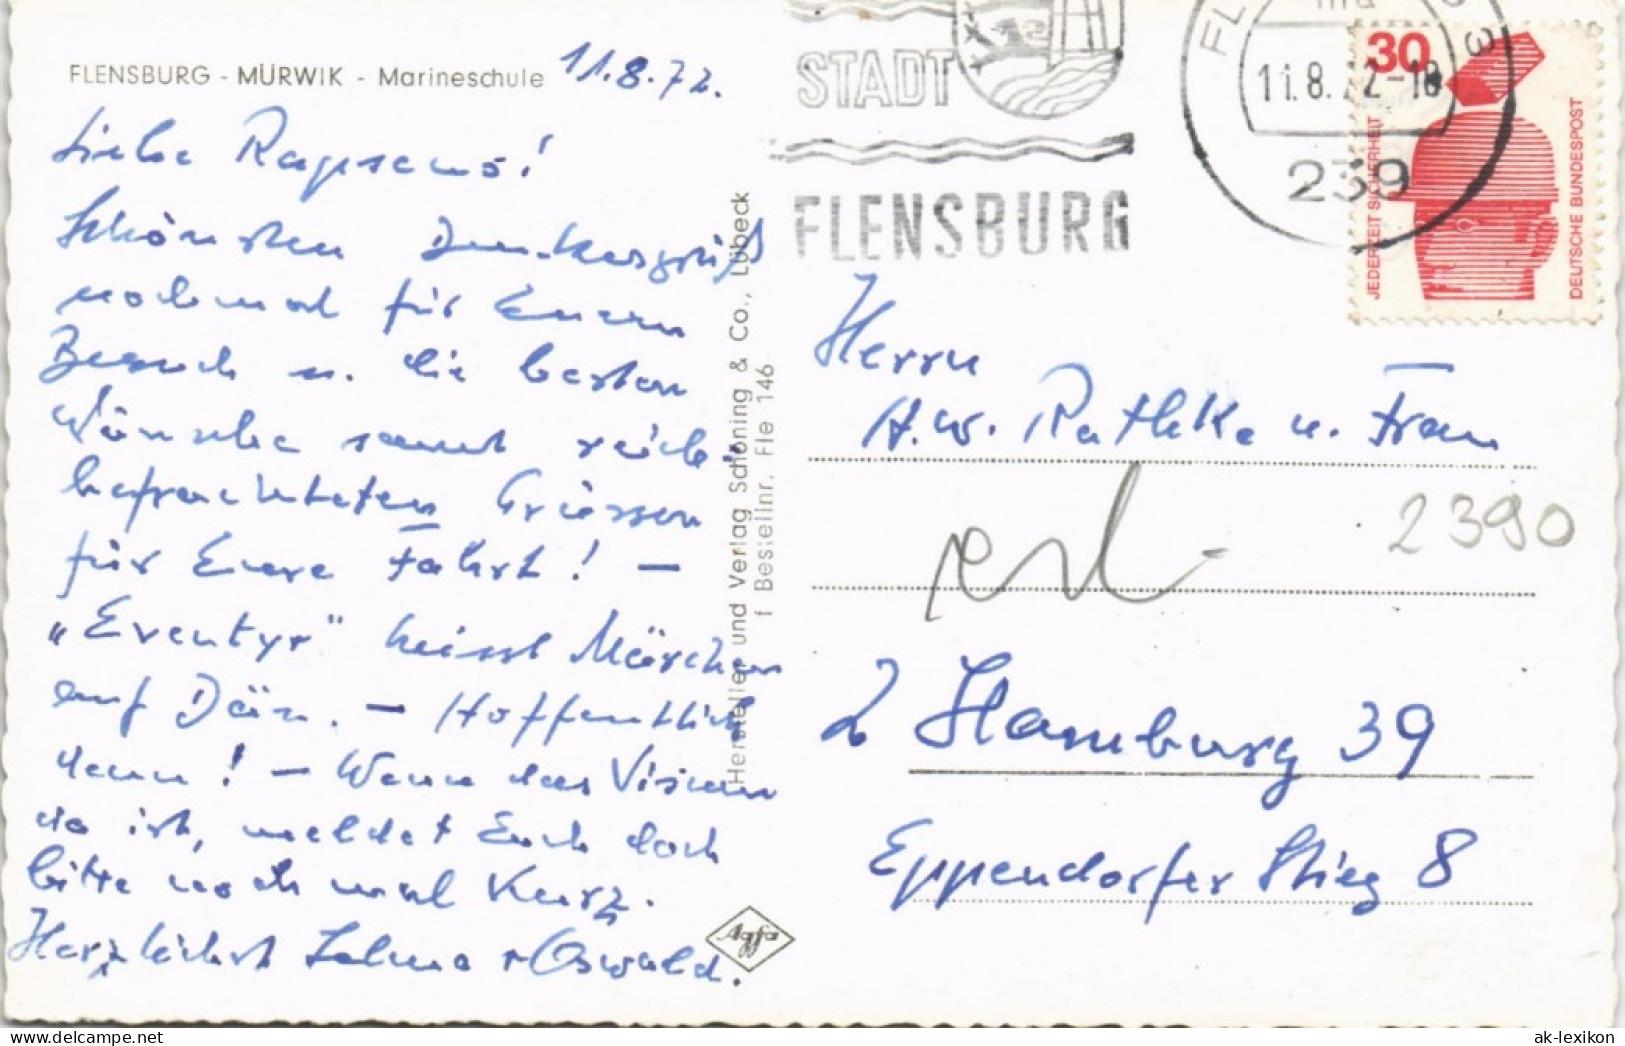 FLENSBURG - MÜRWIK - Marineschule
11.8.72.
Liebe
Schönsten Dankesgruß
nochmal für Euern
Besuch u. die besten
Wünsche samt reich
befrachteten Grüssen
für Euere Fahrt! —
„Eventyr" heisst Märchen
auf Dän. — Hoffentlich
denn! — Wenn das Visum
da ist, meldet Euch doch
bitte noch mal kurz.
Herzlichst + Oswald.
Hersteller und Verlag Schöning & Co., Lübeck
f Bestellnr. Fle 146
Agfa
STADT
FLENSBURG
11.8.72-18
239
30
JEDERZEIT SICHERHEIT
DEUTSCHE BUNDESPOST
Herrn
A.W. Rathke u. Frau
2390
2 Hamburg 39
Eppendorfer Stieg 8
ak-lexikon